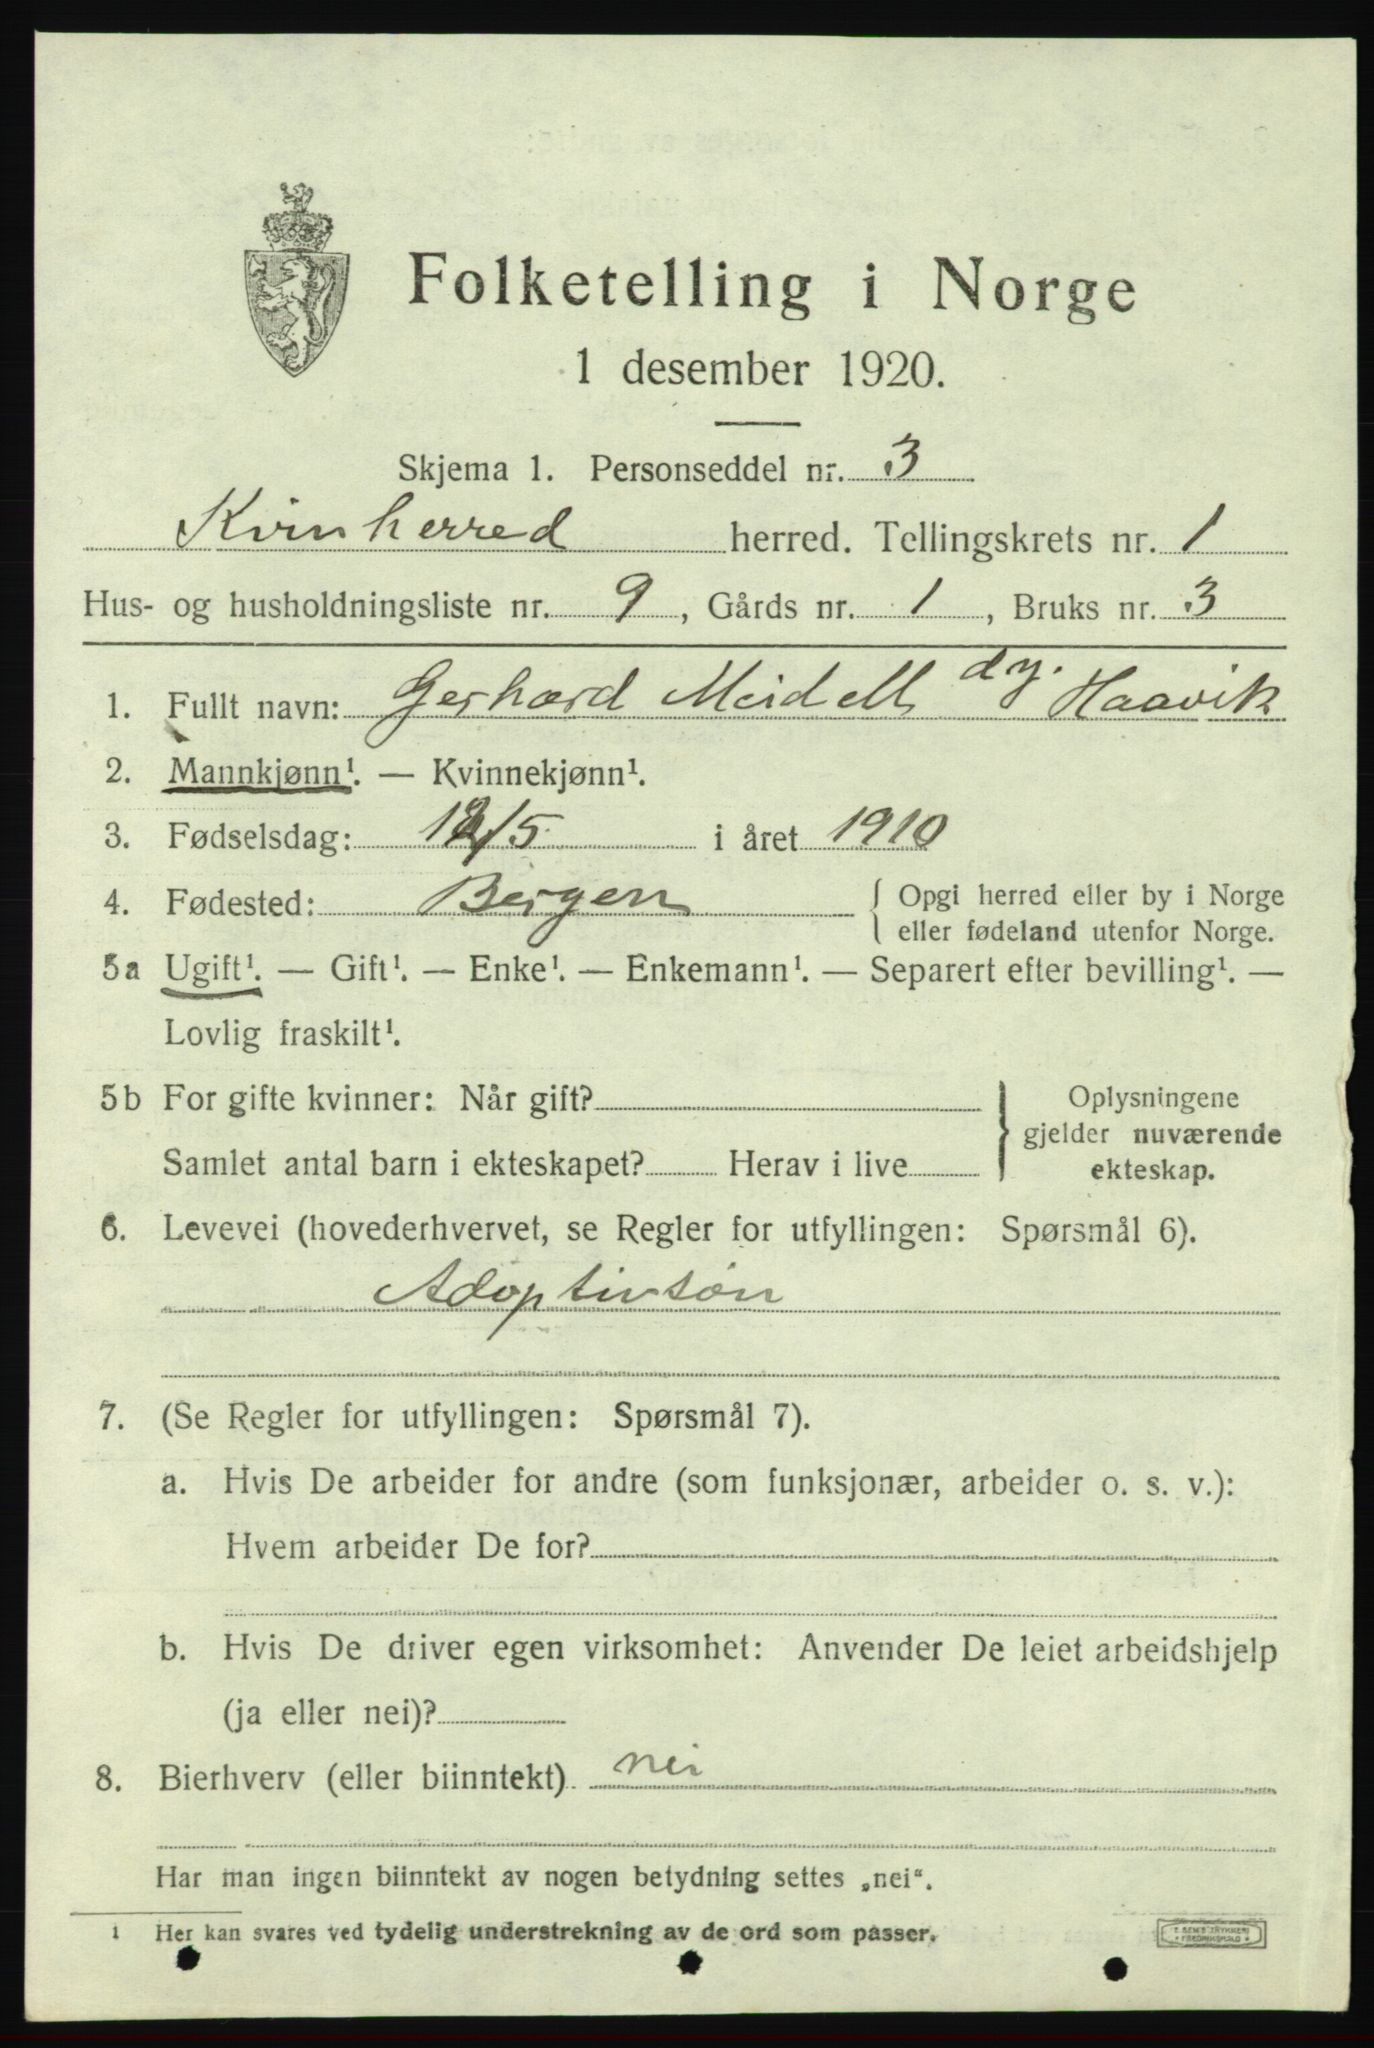 Folketelling i Norge
1 desember 1920.
Skjema 1. Personseddel nr. 3
Kvinherred herred. Tellingskrets nr. 1
Hus- og husholdningsliste nr. 9, Gårds nr. 1, Bruks nr. 3
1. Fullt navn: Gerhard Meidell Haavik
2. Mannkjønn¹. — Kvinnekjønn¹.
3. Fødselsdag: i året 1910
4. Fødested: Bergen { Opgi herred eller by i Norge
eller fødeland utenfor Norge.
5a Ugift¹. — Gift¹. — Enke¹. — Enkemann¹. — Separert efter bevilling¹. —
Lovlig fraskilt¹.
5b For gifte kvinner: Når gift? } Oplysningene
gjelder nuværende
Samlet antal barn i ekteskapet? Herav i live
ekteskap.
6. Levevei (hovederhvervet, se Regler for utfyllingen: Spørsmål 6).
Adoptivsøn
7. (Se Regler for utfyllingen: Spørsmål 7).
a. Hvis De arbeider for andre (som funksjonær, arbeider o. s. v.):
Hvem arbeider De for?
b. Hvis De driver egen virksomhet: Anvender De leiet arbeidshjelp
(ja eller nei)?
8. Bierhverv (eller biinntekt) nei
Har man ingen biinntekt av nogen betydning settes „nei“.
1 Her kan svares ved tydelig understrekning av de ord som passer.